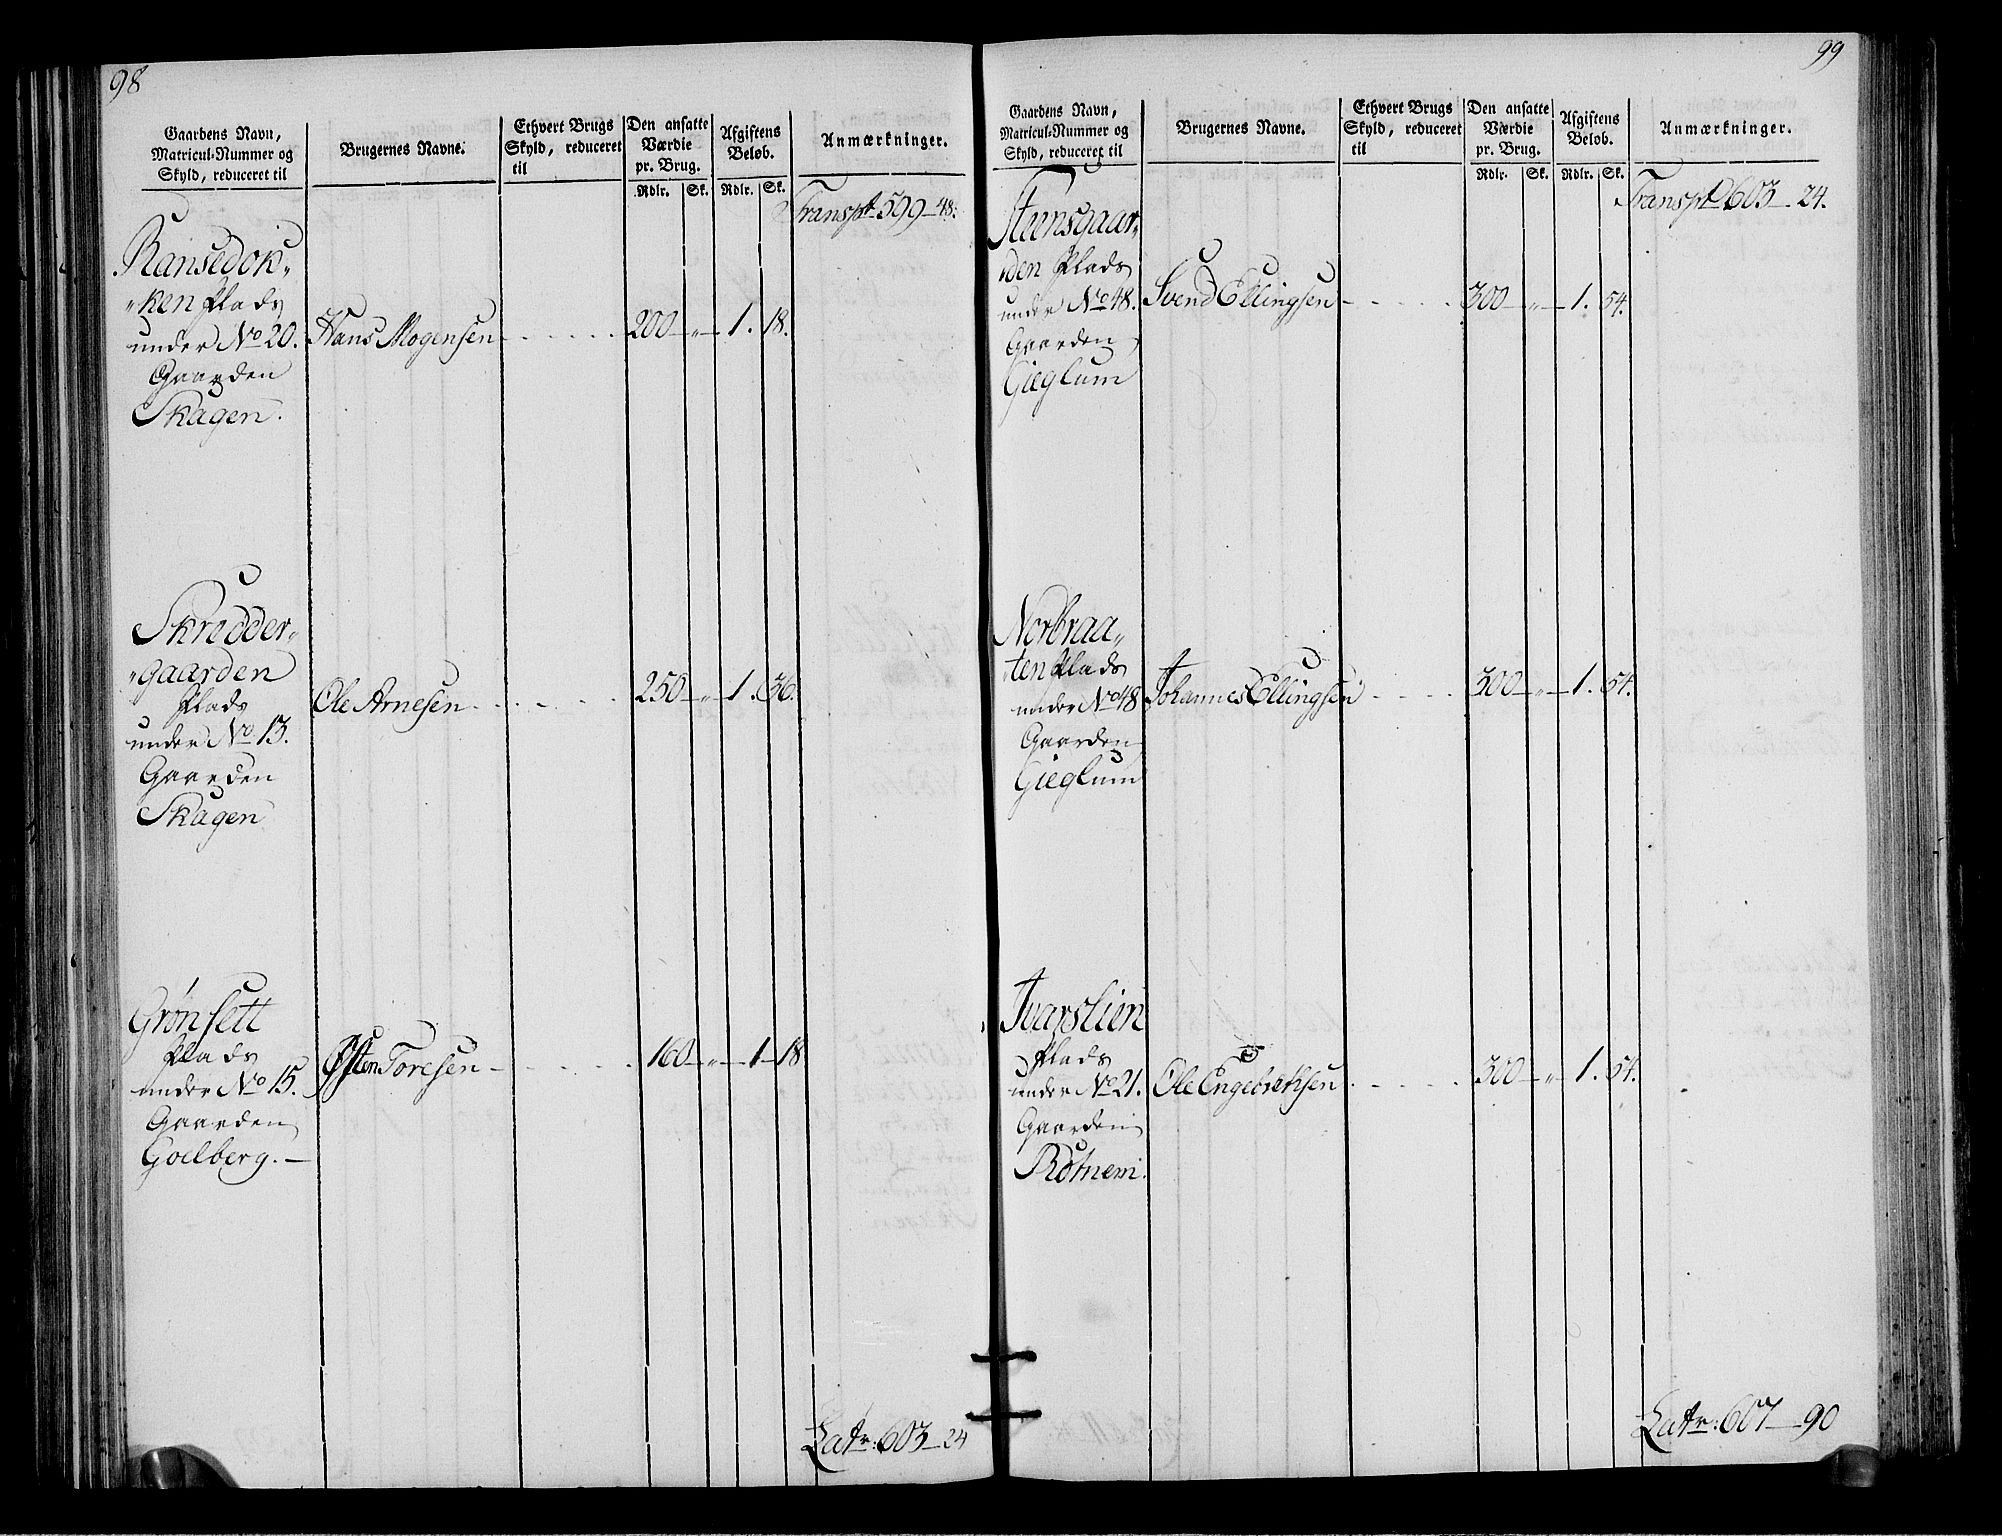 98
Gaardens Navn,
Matricul-Nummer og
Skyld, reduceret til
Brugernes Navne.
Ethvert Brugs
Skyld, reduceret
til
Den ansatte
Værdie
pr. Brug.
Afgiftens
Beløb.
Anmærkninger.
Rdlr. Sk. Rdlr. Sk.
Transpt 599–48.
Ransedok„
„ken Plads
under No 20. Hans Mogensen 200 „ 1. 18.
Gaarden
Skagen.
Skredder„
„gaarden
Plads Ole Arnesen 250 „ 1. 36.
under No 13.
Gaarden
Skagen
Grønsett
Plads
under No 15. Østen Toresen 160 „ 1 18
Gaarden
Goelberg.
Latr: 603–24
99
Gaardens Navn,
Matricul-Nummer og
Skyld, reduceret til
Brugernes Navne.
Ethvert Brugs
Skyld, reduceret
til
Den ansatte
Værdie
pr. Brug.
Afgiftens
Beløb.
Anmærkninger.
Rdlr. Sk. Rdlr. Sk.
Transpt 603–24.
Steensgaar„
„den Plads
under No 48. Svend Ellingsen 300 „ 1. 54.
Gaarden
Gieglum
Norbraa„
„ten Plads
under No 48 Johannes Ellingsen 300 „ 1. 54.
Gaarden
Gieglum
Ivarslien
Plads
under No 21. Ole Engebrethsen 300 „ 1. 54.
Gaarden
Rotnem.
Latr: 607–90